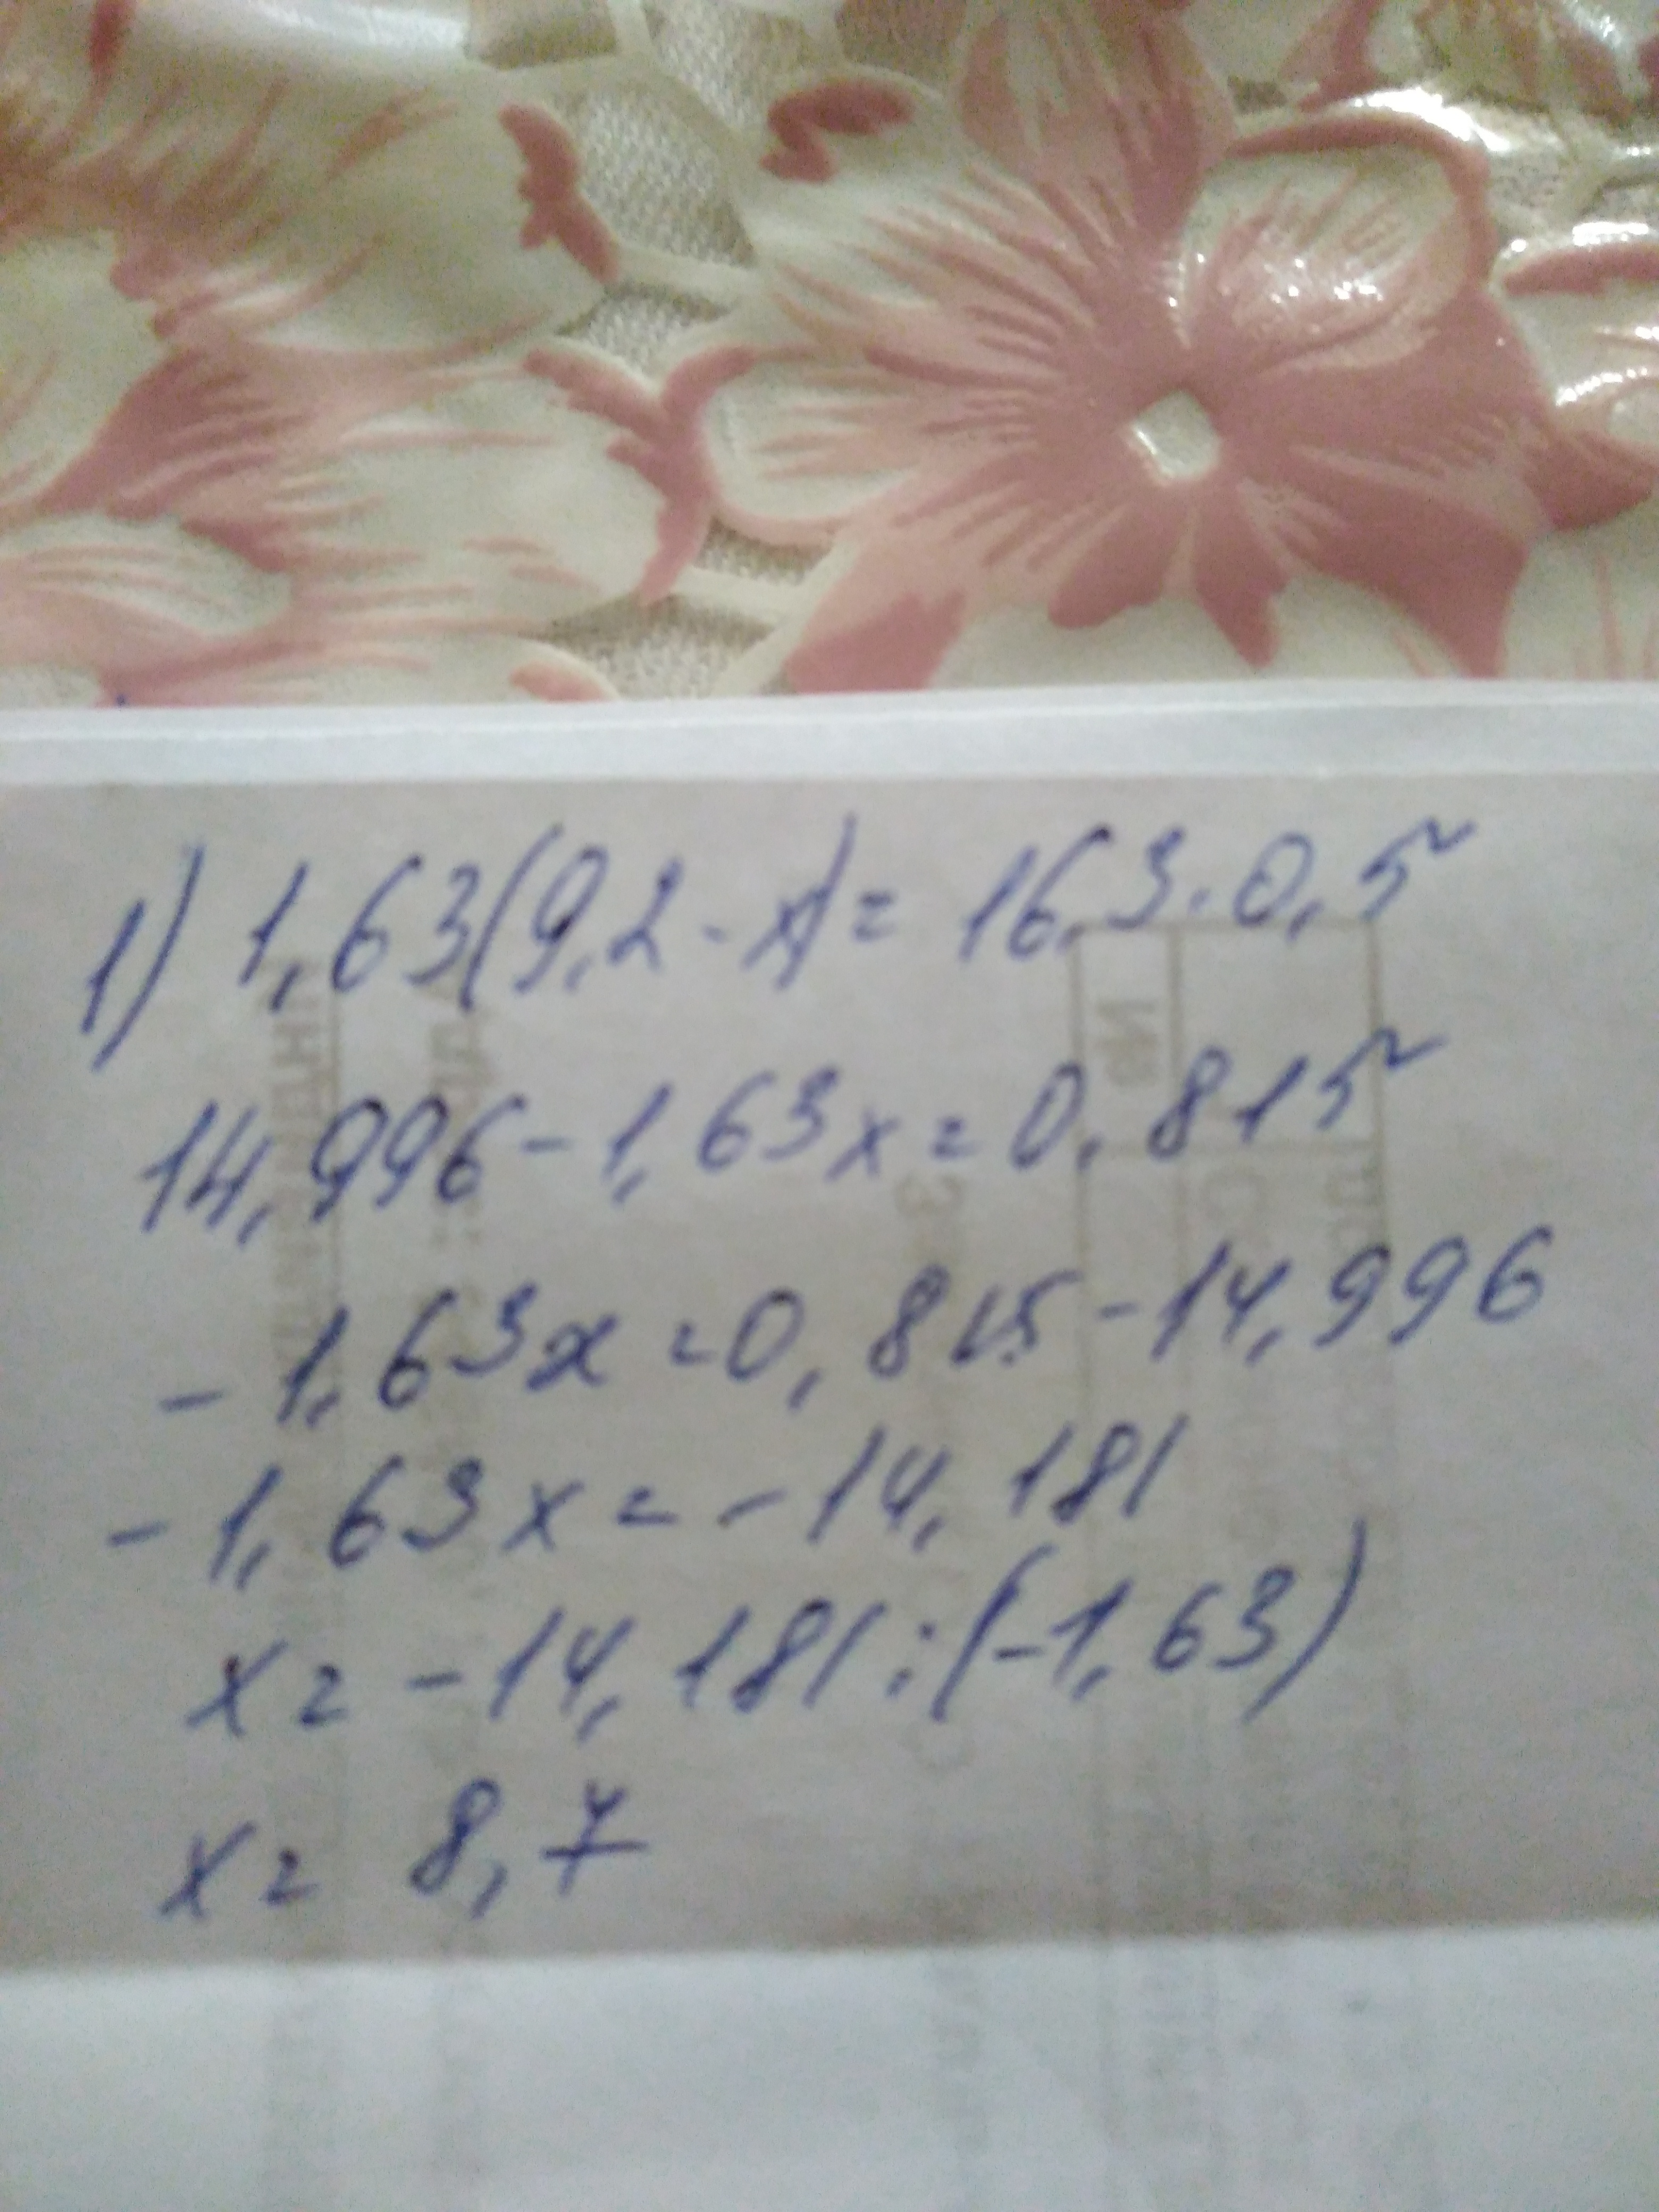 1) 1,63(9,2-x)=16,3·0,5
14,996-1,63x=0,815
-1,63x=0,815-14,996
-1,63x=-14,181
x=-14,181:(-1,63)
x=8,7
№